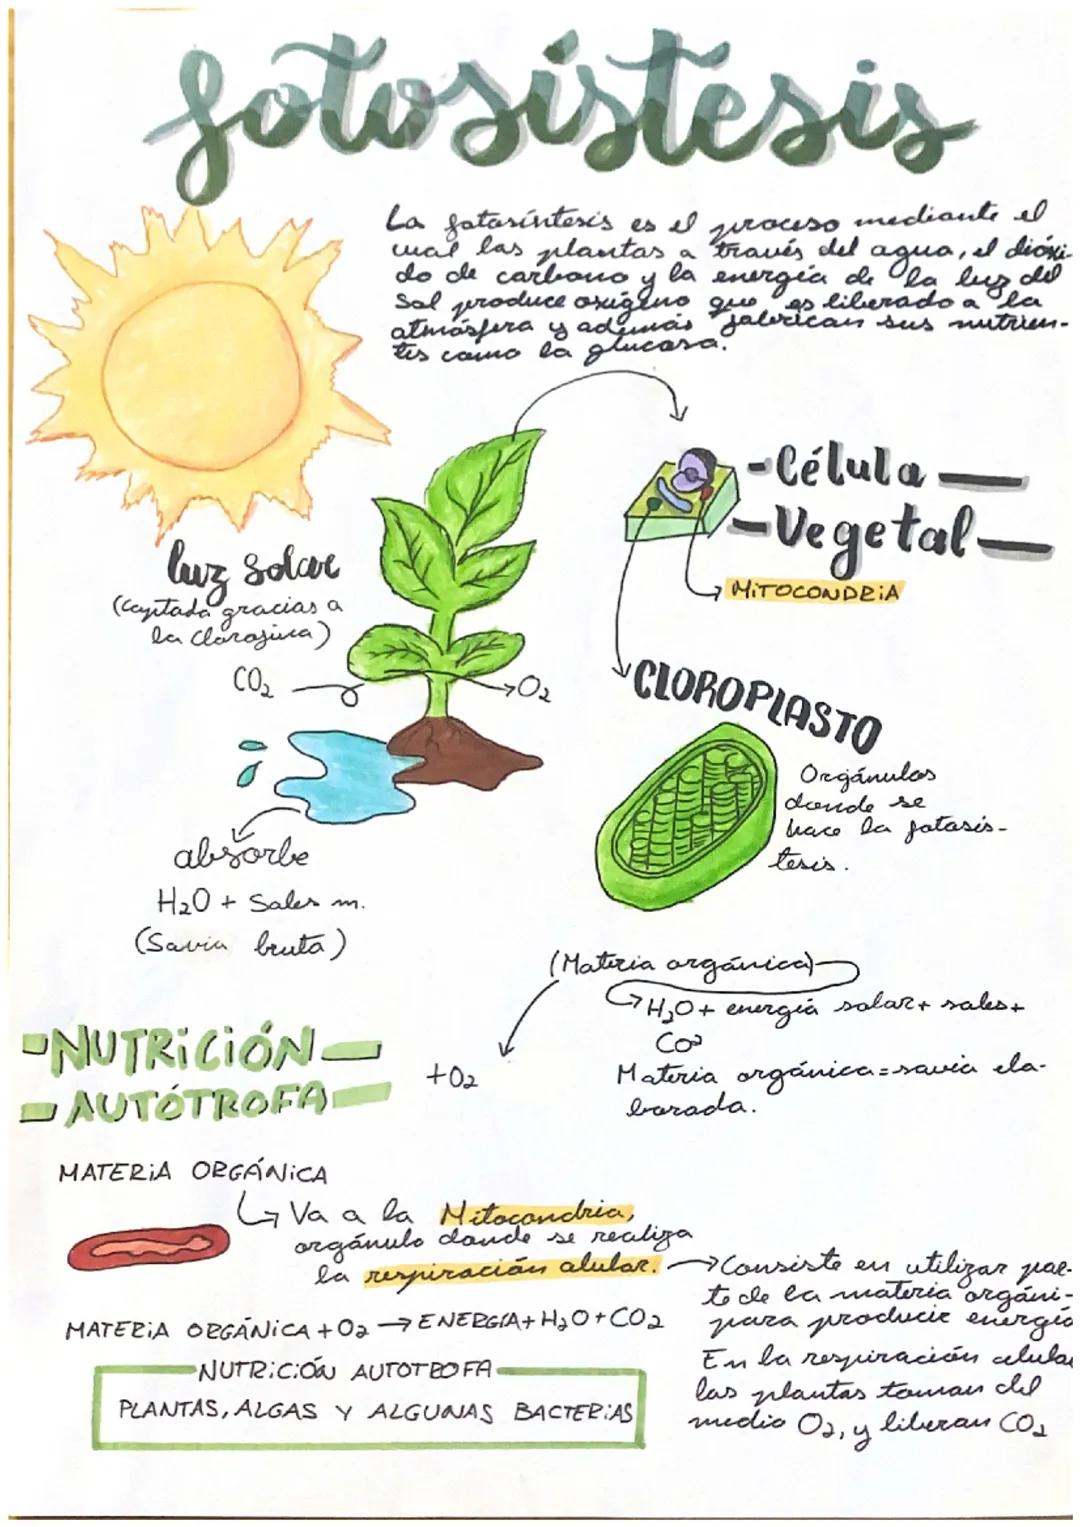 fotosístesis
La fotosíntesis es el proceso mediante el
cual las plantas a través del agua, el dióxi-
do de carbono y la energía de la luz del
Sol produce oxígeno que es liberado a la
atmósfera y además fabrican sus nutrien-
tes como la glucosa.
-Célula
-Vegetal-
MiTOCONDRiA
luz solar
(Captada gracias a
la clorofila)
CO2
O2
CLOROPLASTO
Orgánulos
donde se
hace la fotosis-
tesis.
absorbe
H2O + Sales m.
(Savia bruta)
(Materia orgánica)
H2O + energía solar + sales +
CO2
Materia orgánica = savia ela-
borada.
+O2
-NUTRiCiÓN-
-AUTÓTROFA-
MATERiA ORGÁNiCA
Va a la Mitocondria,
orgánulo donde se realiza
la respiración celular.
Consiste en utilizar par-
te de la materia orgáni-
para producir energía
En la respiración celular
las plantas toman del
medio O2, y liberan CO2
MATERiA ORGÁNiCA + O2 → ENERGÍA + H2O + CO2
NUTRiCiÓN AUTOTROFA
PLANTAS, ALGAS Y ALGUNAS BACTERiAS